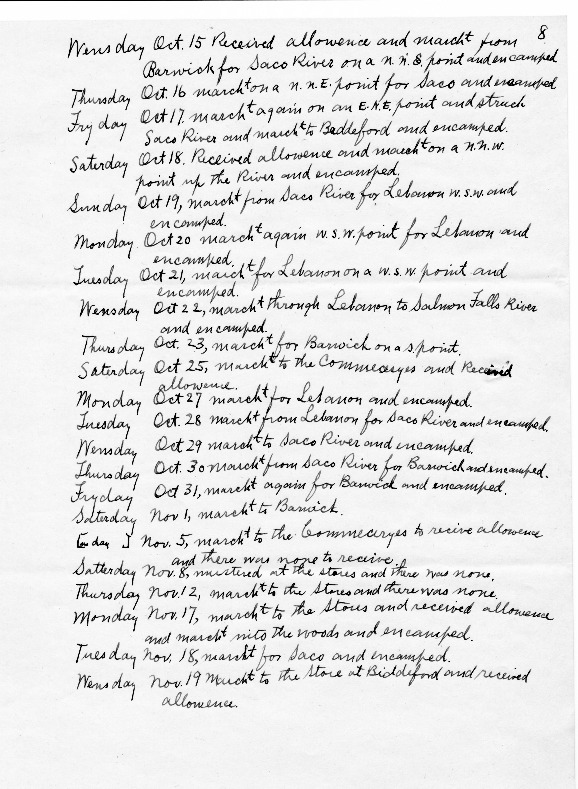 8
Wensday Oct. 15 Received allowence and marcht from
Barwick for Saco River on a n.n.E. point and encamped
Thursday Oct. 16 marcht on a n.n.E. point for Saco and encamped
Fryday Oct 17, marcht again on an E.n.E. point and struck
Saco River and marcht to Beddeford and encamped.
Saturday Oct 18. Received allowence and marcht on a n.n.w.
point up the River and encamped.
Sunday Oct 19, marcht from Saco River for Lebanon w.s.w. and
encamped.
Monday. Oct 20 marcht again w.s.w. point for Lebanon and
encamped.
Tuesday Oct 21, marcht for Lebanon on a w.s.w. point and
encamped.
Wensday Oct 22, marcht through Lebanon to Salmon Falls River
and encamped.
Thursday Oct. 23, marcht for Barwick on a s. point.
Saterday Oct 25, marcht to the Commecaryes and Received
allowence.
Monday Oct 27 marcht for Lebanon and encamped.
Tuesday Oct. 28 marcht from Lebanon for Saco River and encamped.
Wensday Oct 29 marcht to Saco River and encamped.
Thursday Oct. 30 marcht from Saco River for Barwich and encamped.
Fryday Oct 31, marcht again for Barwick and encamped.
Saturday Nov 1, marcht to Barwick.
day ] Nov. 5, marcht to the Commecaryes to recive allowence
and there was none to receive.
Satterday Nov. 8, mustired at the stores and there was none.
Thursday Nov. 12, marcht to the Stores and there was none.
Monday Nov. 17, marcht to the Stores and received allowence
and marcht into the woods and encamped.
Tuesday Nov. 18, marcht for Saco and encamped.
Wensday Nov. 19 Marcht to the Store at Biddeford and received
allowence.